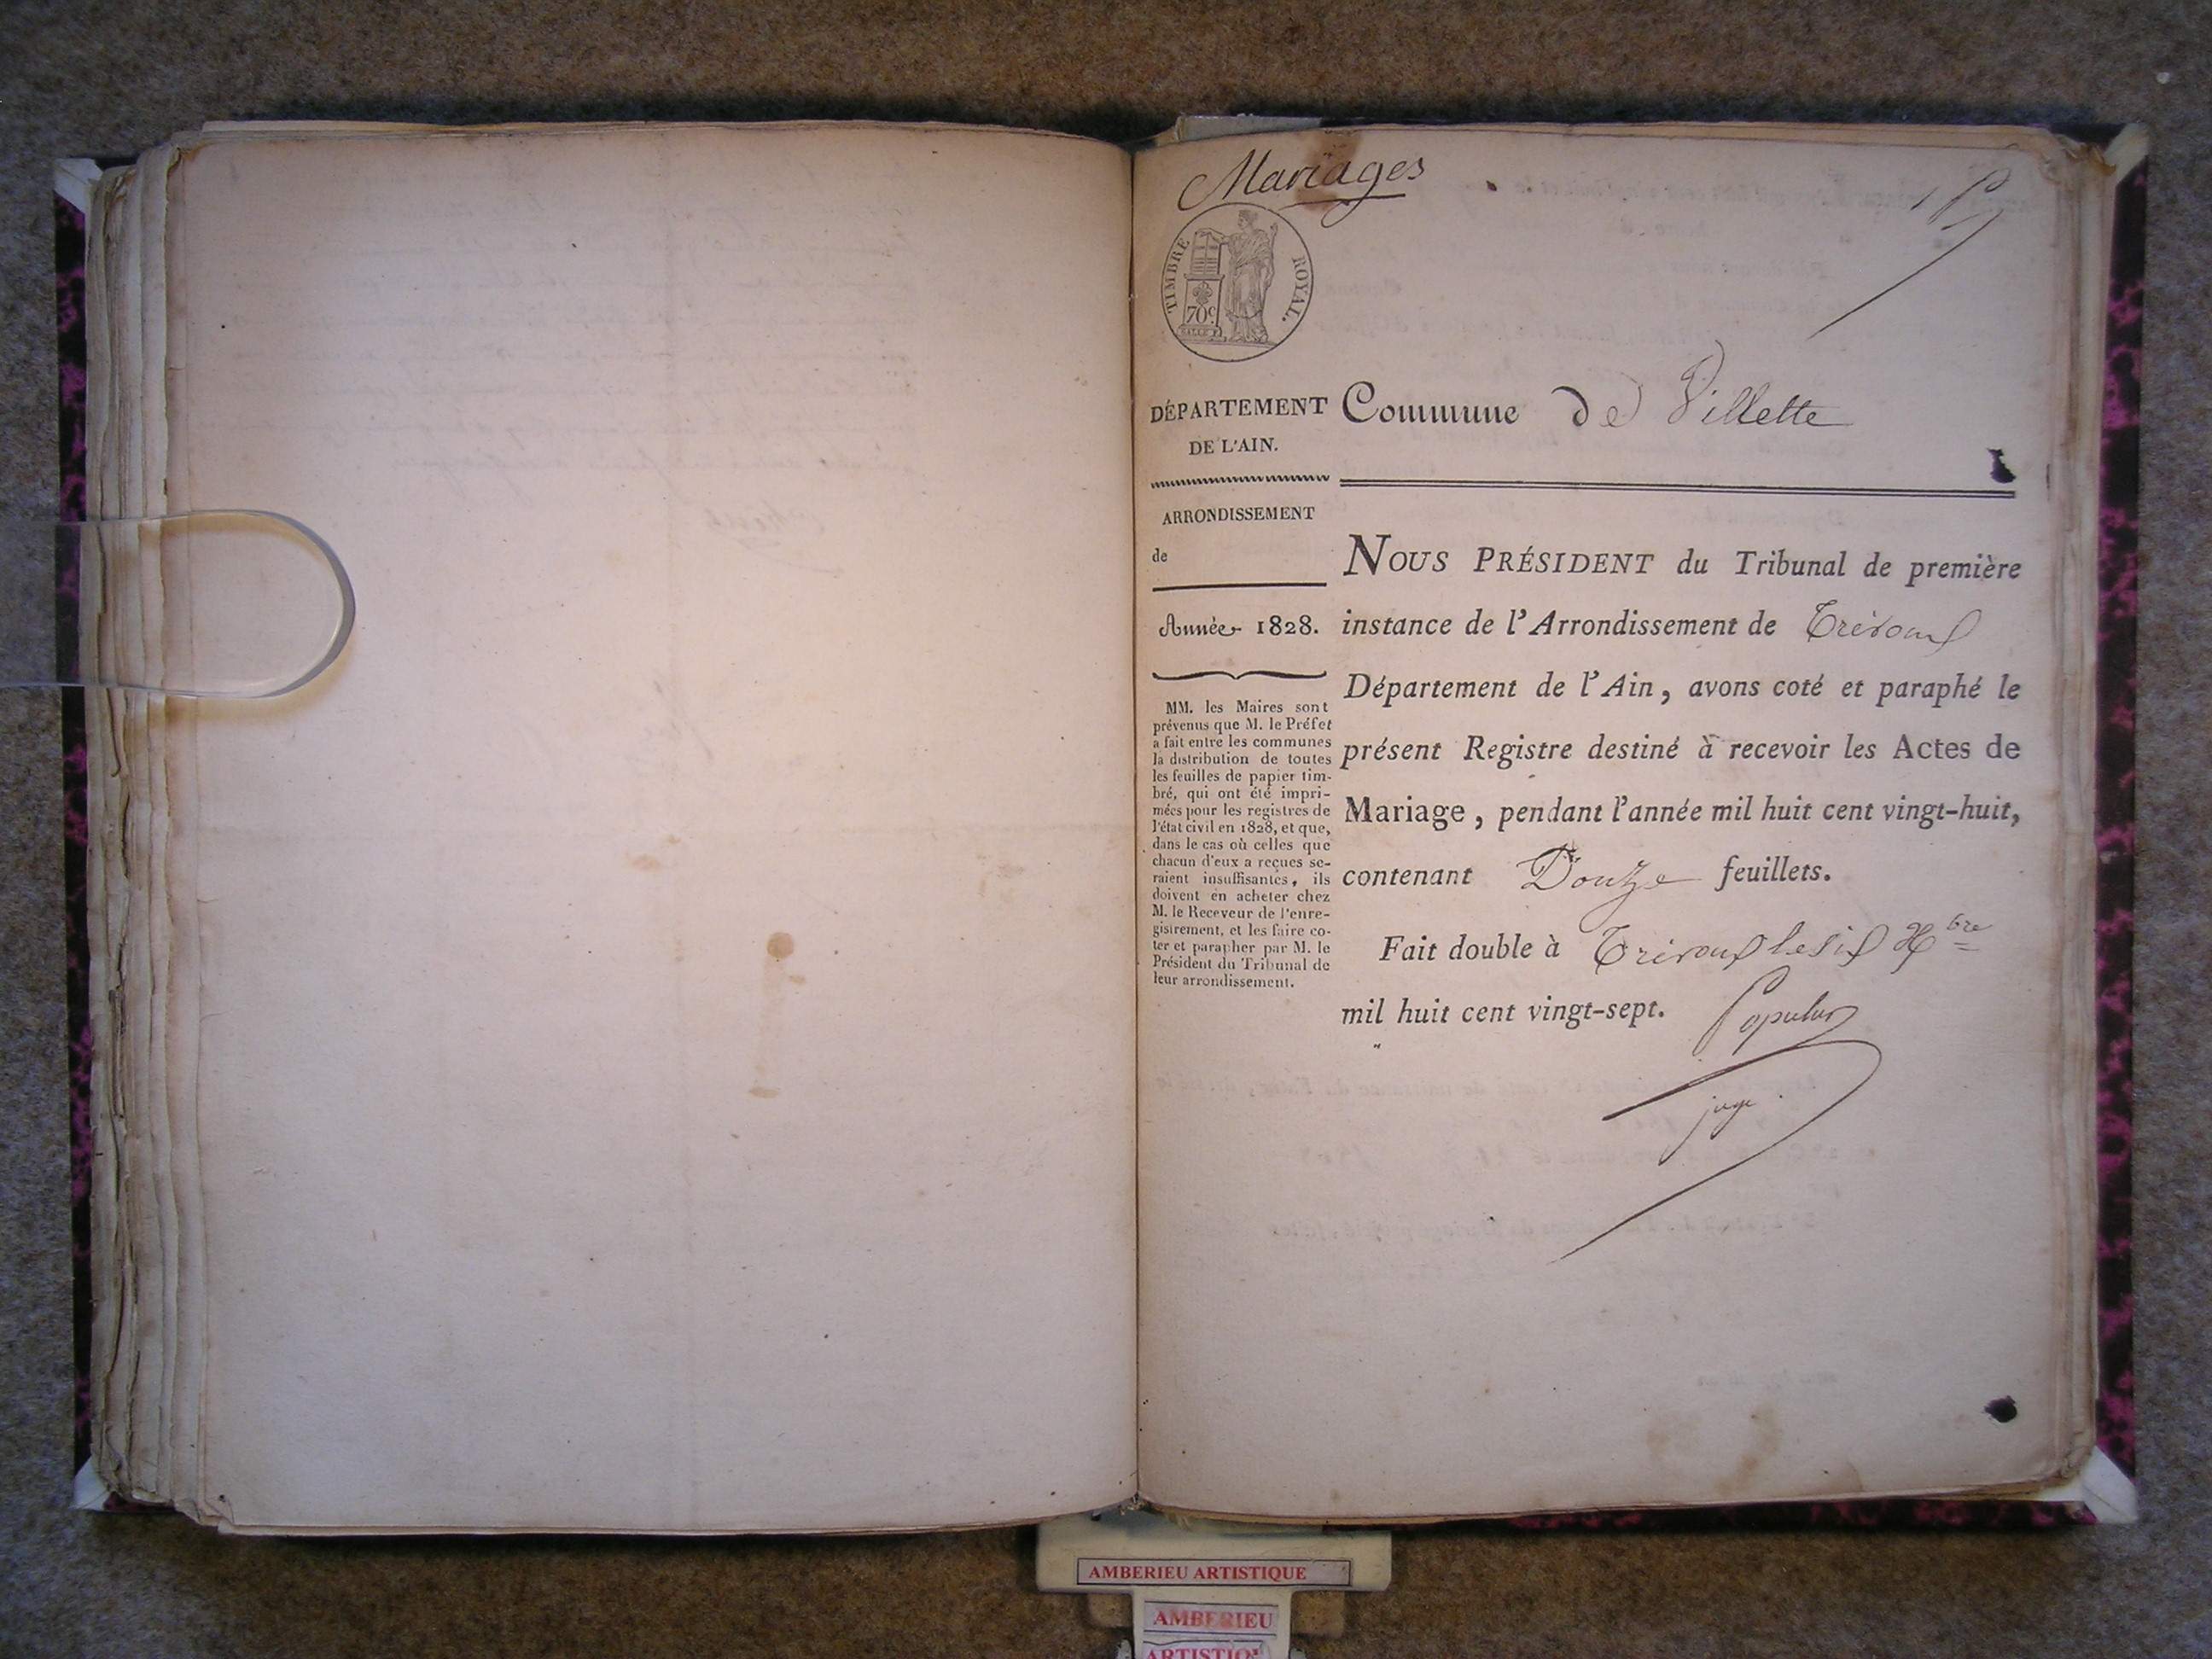 Mariages
TIMBRE ROYAL.
70 c
DÉPARTEMENT
DE L'AIN.
ARRONDISSEMENT
de
Année 1828.
MM. les Maires sont
prévenus que M. le Préfet
a fait entre les communes
la distribution de toutes
les feuilles de papier tim-
bré, qui ont été impri-
mées pour les registres de
l'état civil en 1828, et que,
dans le cas où celles que
chacun d'eux a reçues se-
raient insuffisantes, ils
doivent en acheter chez
M. le Receveur de l'enre-
gistrement, et les faire co-
ter et parapher par M. le
Président du Tribunal de
leur arrondissement.
Commune de Villette
NOUS PRÉSIDENT du Tribunal de première
instance de l'Arrondissement de Trévoux
Département de l'Ain, avons coté et paraphé le
présent Registre destiné à recevoir les Actes de
Mariage, pendant l'année mil huit cent vingt-huit,
contenant Douze feuillets.
Fait double à Trévoux le six Xbre
mil huit cent vingt-sept.
juge
AMBERIEU ARTISTIQUE
AMBERIEU